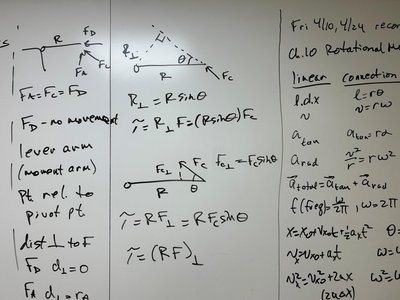 R
F_D
F_A
F_C
F_A = F_C = F_D
F_D - no movement
lever arm
(moment arm)
pt rel. to
pivot pt.
dist ⊥ to F
F_D d_⊥ = 0
F_A d_⊥ = r_A
R_⊥
θ
R
F_C
R_⊥ = R sin θ
τ = R_⊥ F = (R sin θ) F_C
F_C⊥
F_C
F_C⊥ = F_C sin θ
R
θ
τ = R F_⊥ = R F_C sin θ
τ = (RF)_⊥
Fri 4/10, 4/24 recor
Ch.10 Rotational M
linear connection
l.d.x l = rθ
v v = rω
a_tan a_tan = rα
a_rad v²/r = rω²
a⃗_total = a⃗_tan + a⃗_rad
f (freq) = ω/2π, ω = 2π
x = x₀ + v_x0 t + ½ a_x t² θ =
v_x = v_x0 + a_x t ω
v_x² = v_x0² + 2aΔx ω² = ω